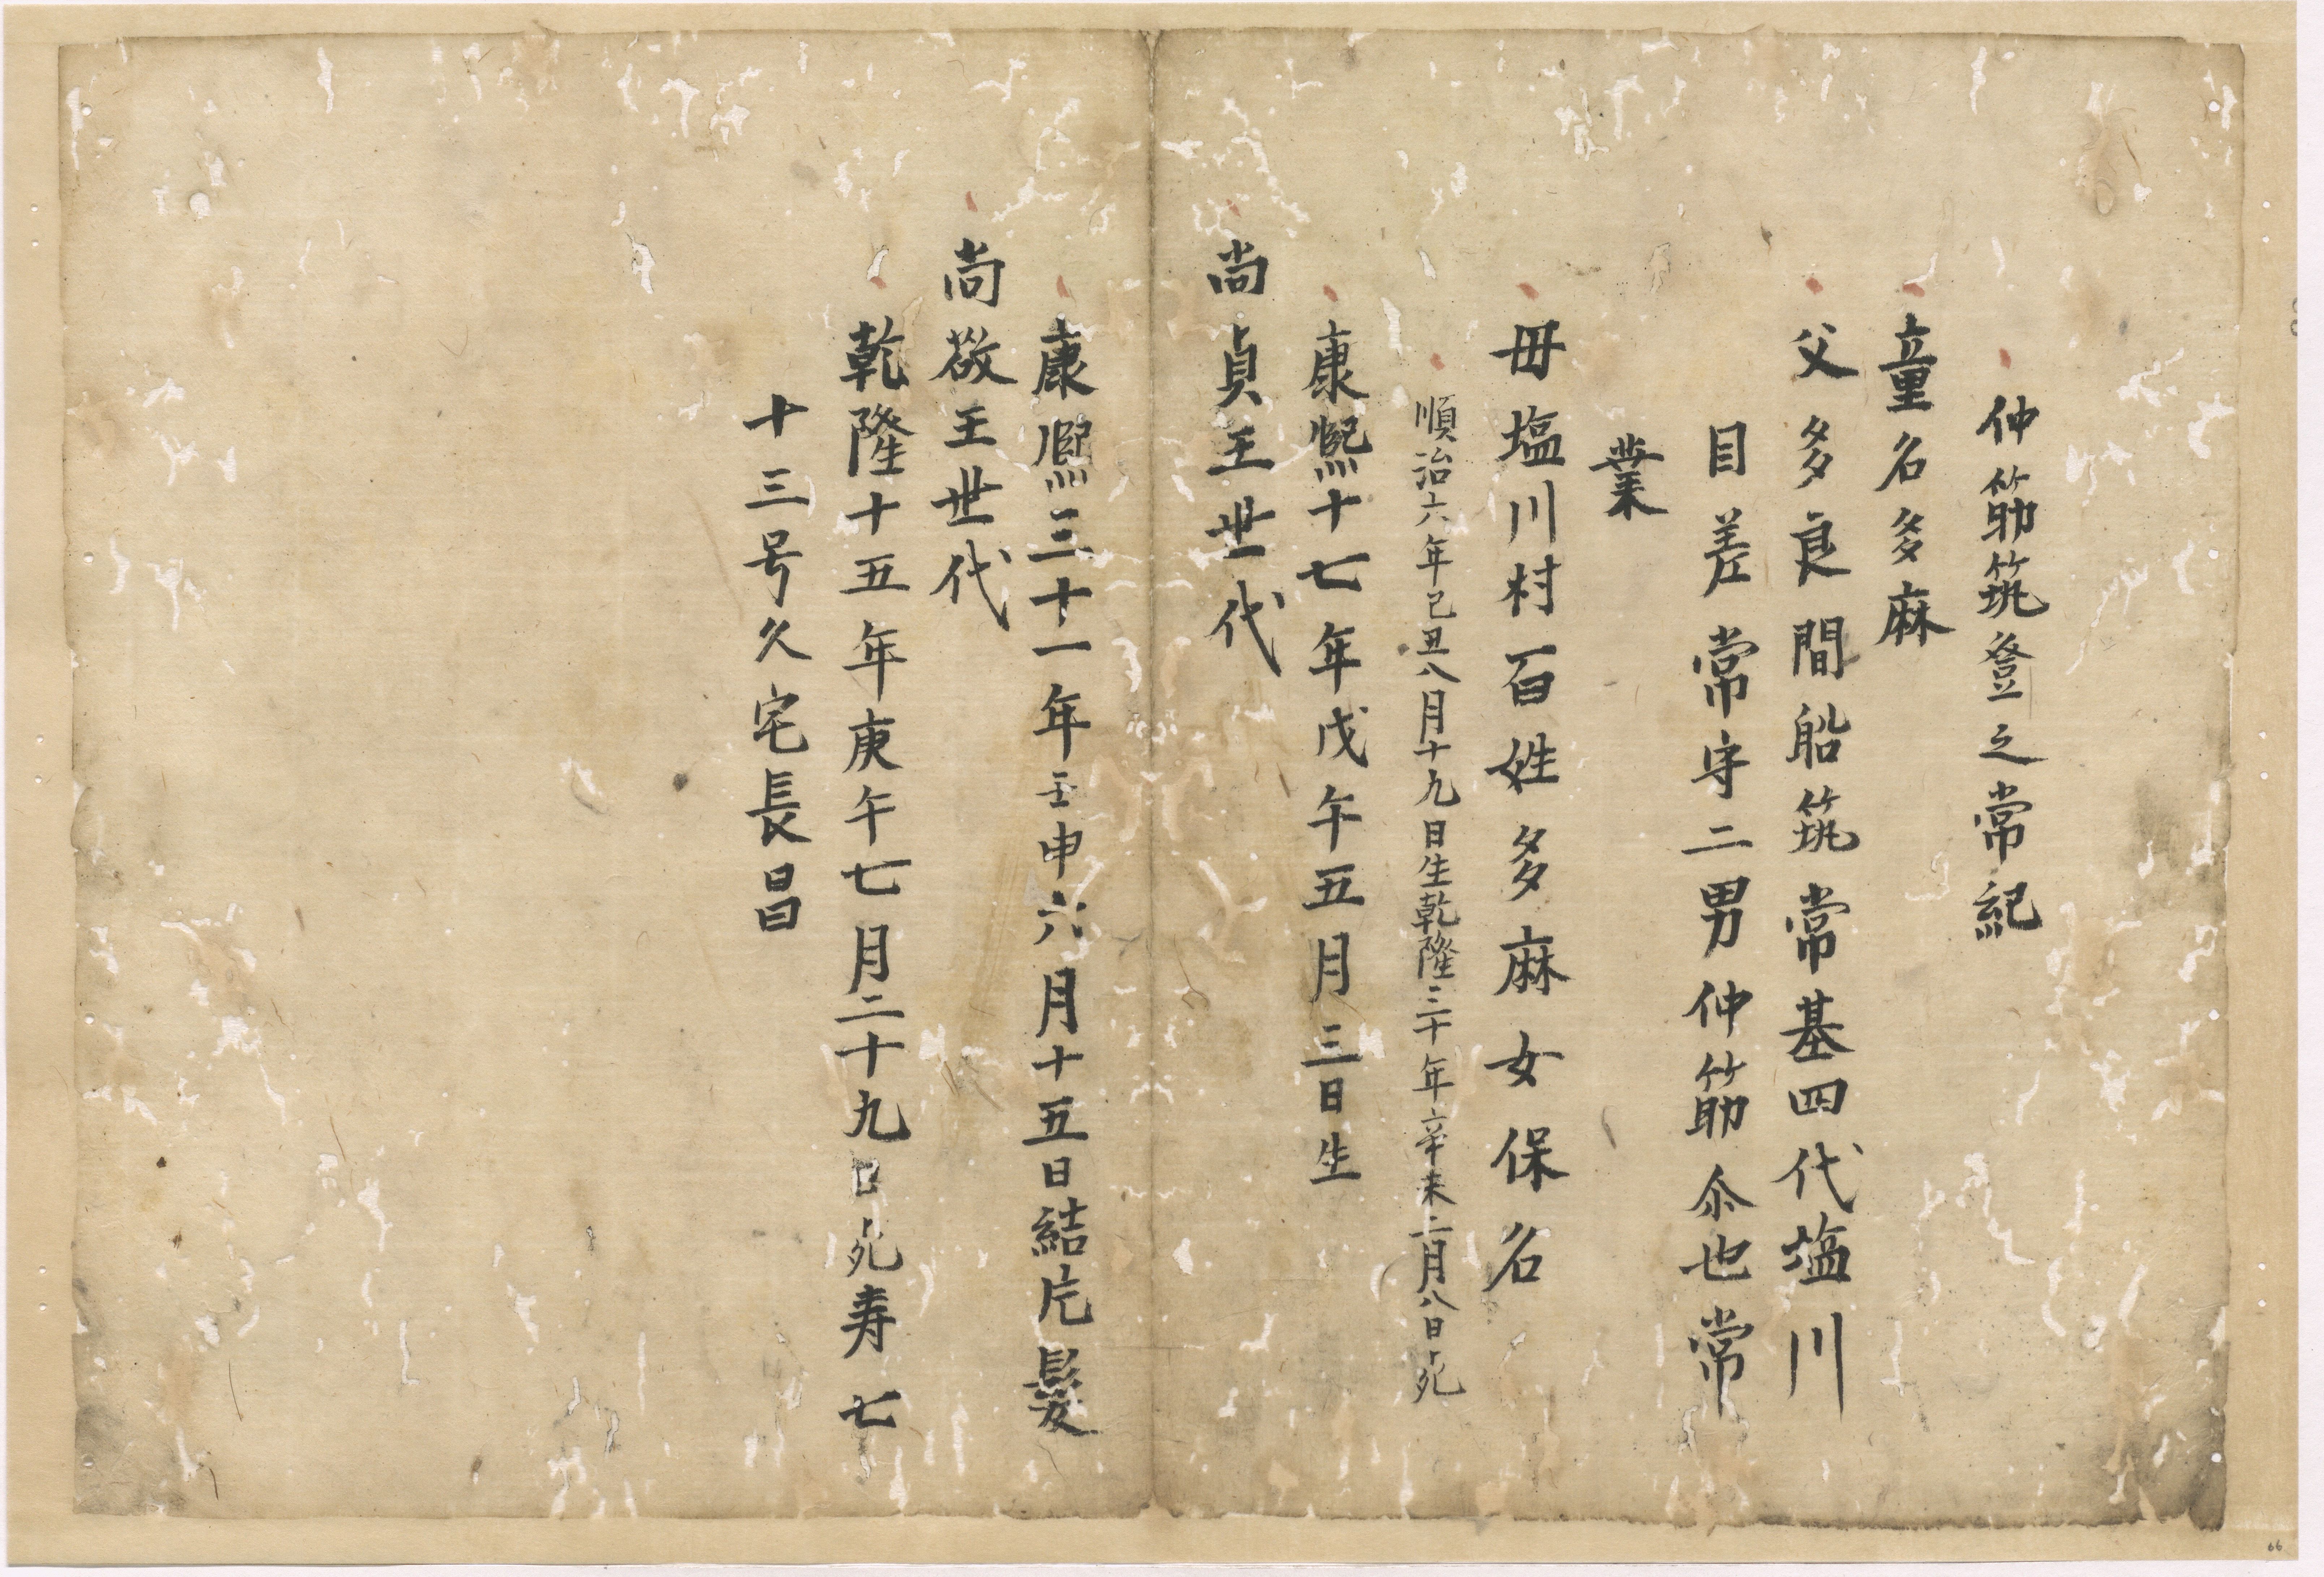 仲筋筑登之常紀
童名多麻
父多良間船筑常基四代塩川
目差常守二男仲筋尓也常
業
母塩川村百姓多麻女保名
順治六年己丑八月十九日生乾隆三十年辛未二月八日死
康熙十七年戊午五月三日生
尚貞王世代
康熙三十一年壬申六月十五日結片髮
尚敬王世代
乾隆十五年庚午七月二十九日死寿七
十三号久宅長昌
66